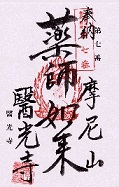 奉納
第七番
七番
摩尼山
薬師如来
醫光寺
醫光寺